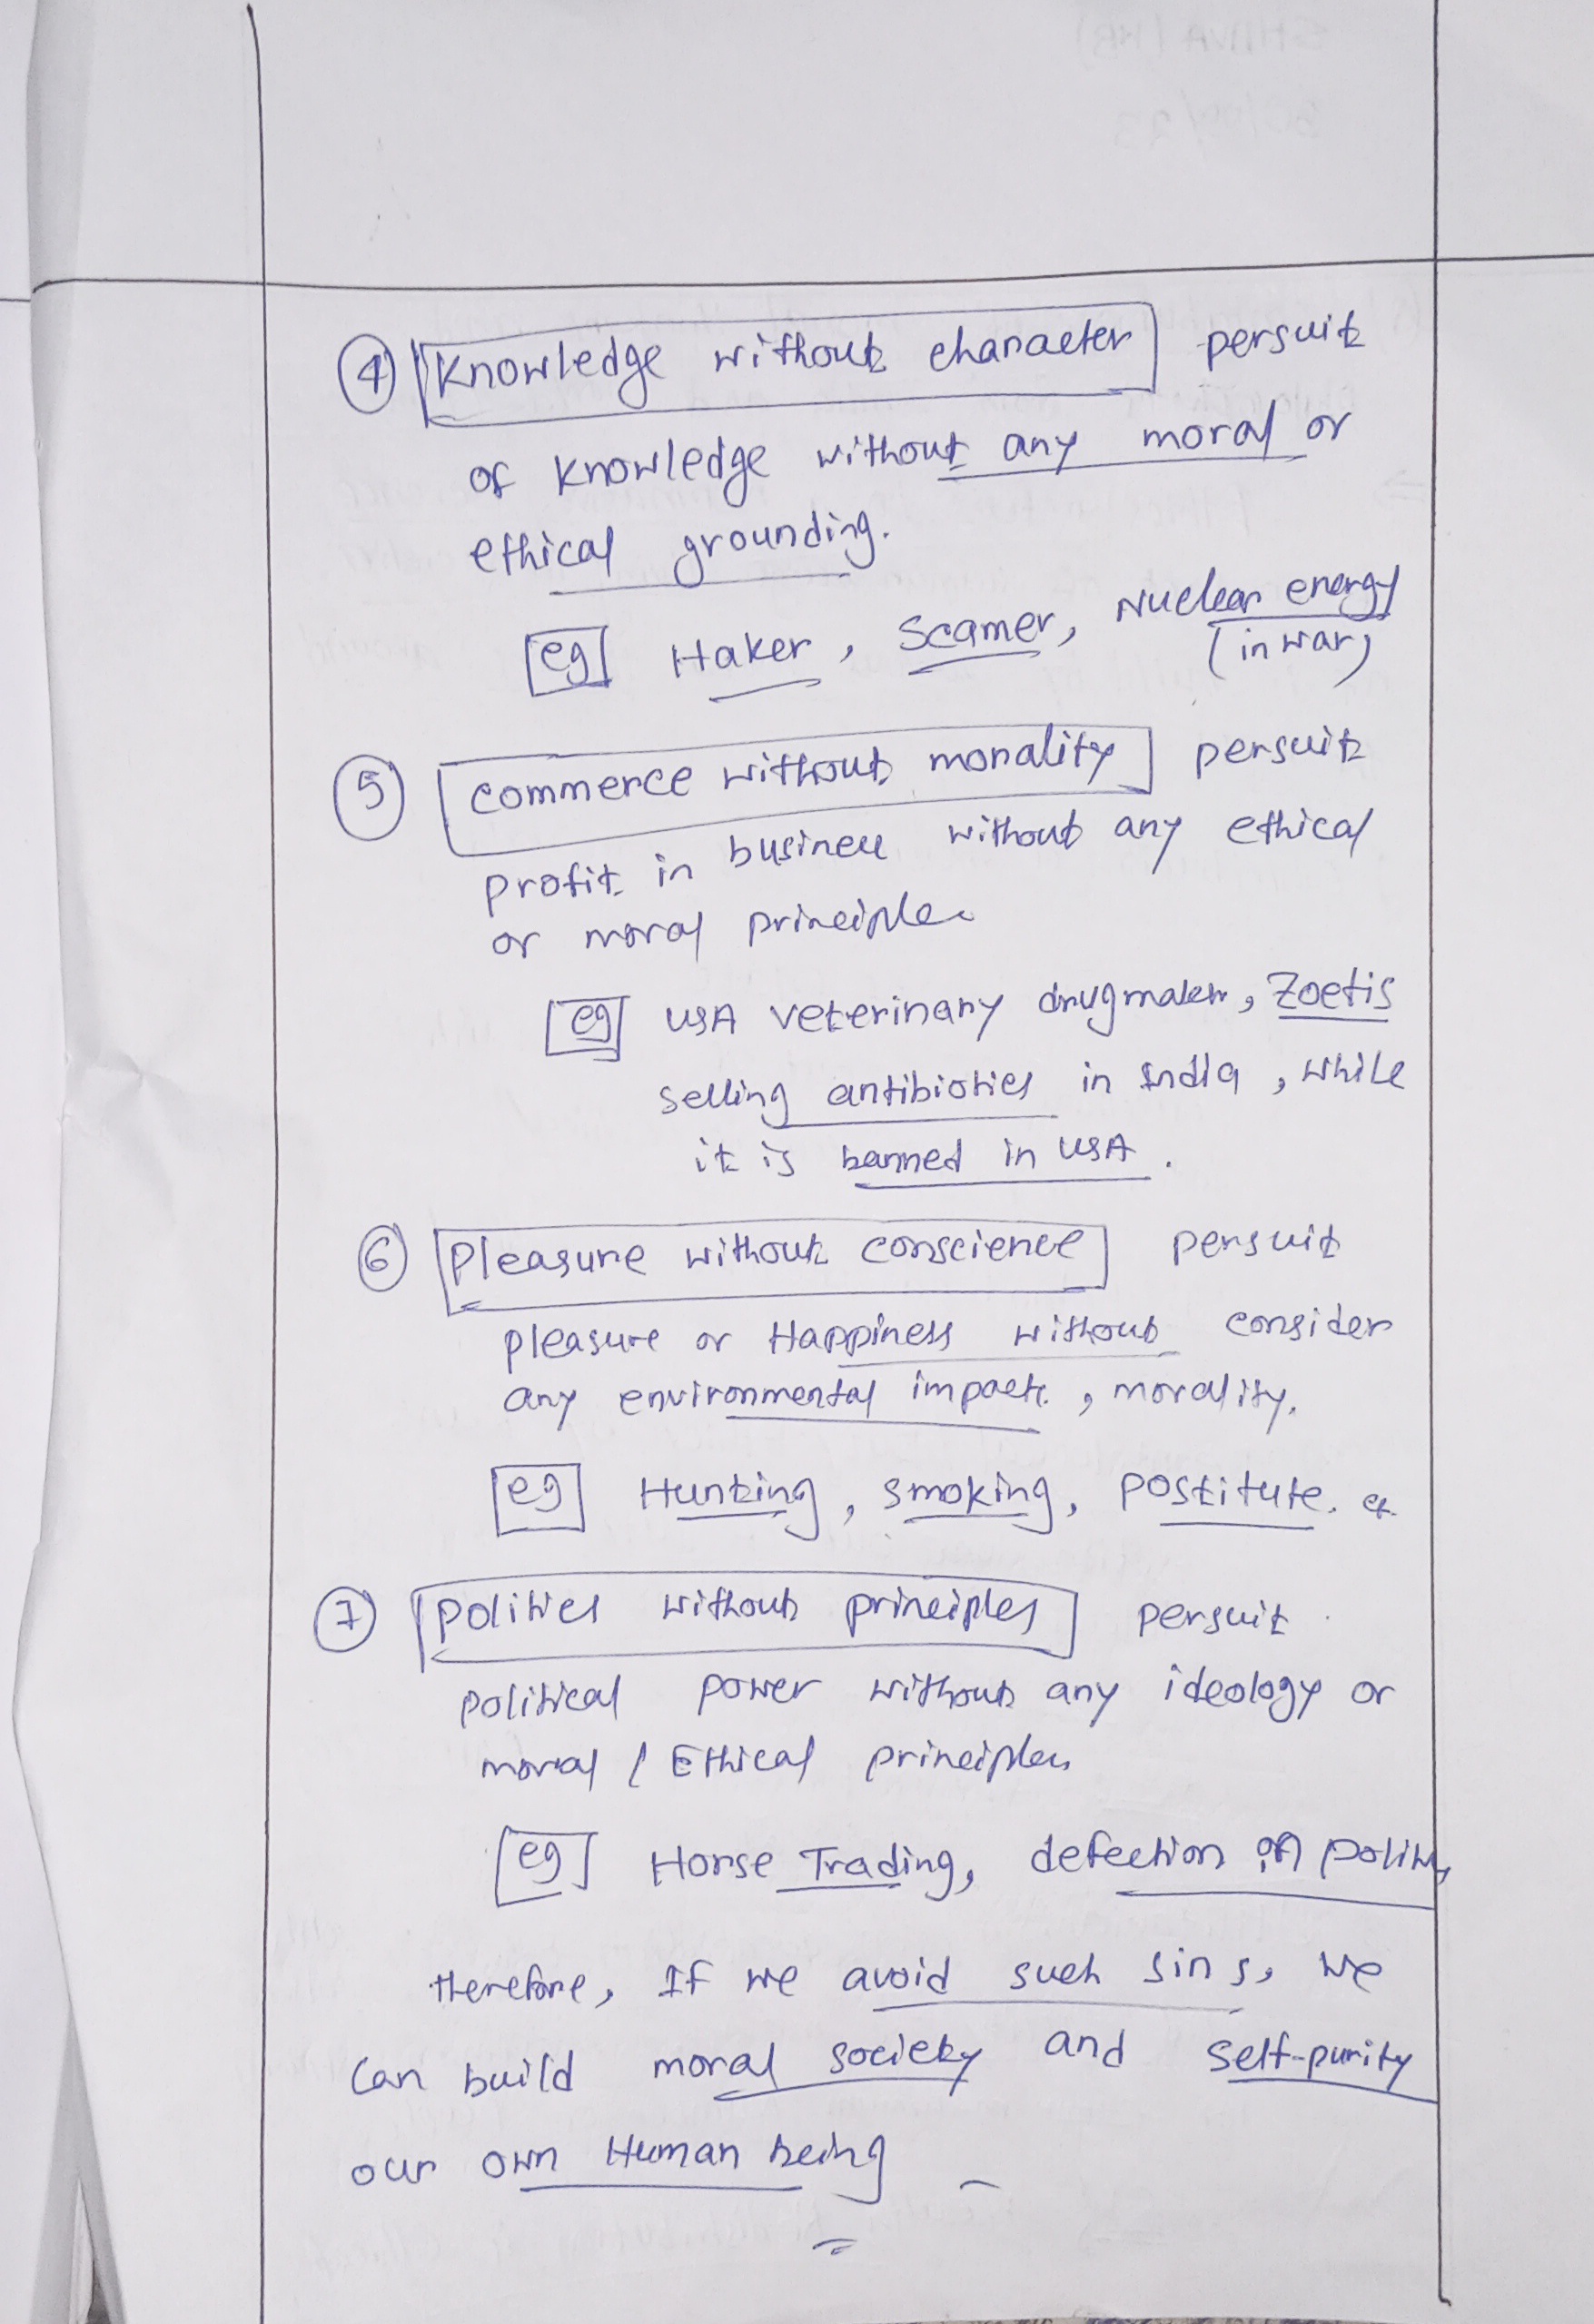 ④ Knowledge without character persuit
of knowledge without any moral or
ethical grounding.
eg Haker, Scamer, Nuclear energy
(in war)
⑤ commerce without morality persuit
profit in business without any ethical
or moral principles
eg USA veterinary drugmaker, Zoetis
selling antibiotics in India, while
it is banned in USA.
⑥ pleasure without conscience persuit
pleasure or Happiness without consider
any environmental impact, morality.
eg Hunting, smoking, postitute. etc
⑦ politics without principles persuit
political power without any ideology or
moral / Ethical principles
eg Horse Trading, defection of
therefore, If we avoid such sins, we
can build moral society and self-purity
our own Human being